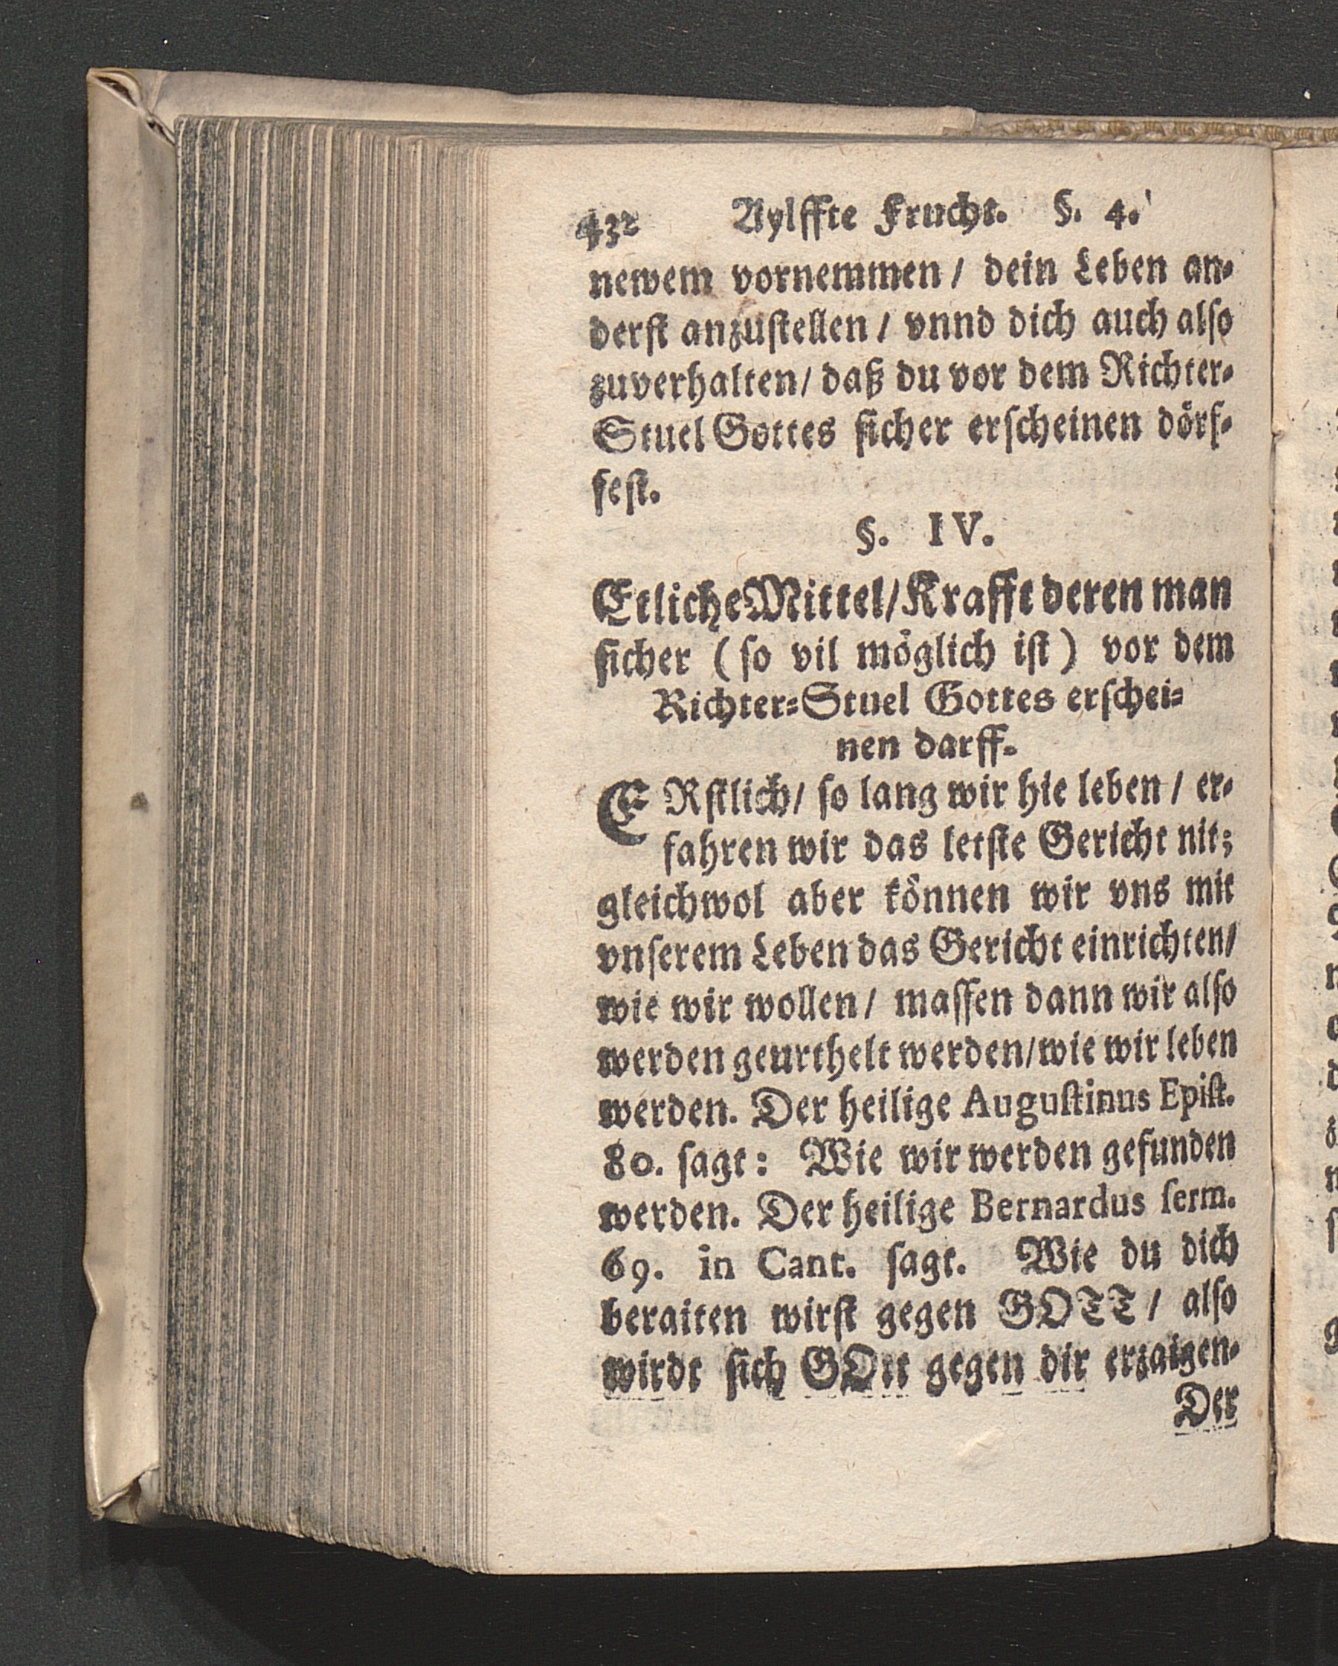 432 Aylffte Frucht. §. 4.
newem vornemmen / dein Leben an-
derst anzustellen / vnnd dich auch also
zuverhalten / daß du vor dem Richter-
Stuel Gottes sicher erscheinen dörf-
fest.
§. IV.
Etliche Mittel / Krafft deren man
sicher ( so vil möglich ist ) vor dem
Richter-Stuel Gottes erschei-
nen darff.
ERstlich / so lang wir hie leben / er-
fahren wir das letste Gericht nit;
gleichwol aber können wir vns mit
vnserem Leben das Gericht einrichten /
wie wir wollen / massen dann wir also
werden geurthelt werden / wie wir leben
werden. Der heilige Augustinus Epist.
80. sagt: Wie wir werden gefunden
werden. Der heilige Bernardus serm.
69. in Cant. sagt. Wie du dich
beraiten wirst gegen GOTT / also
wirdt sich GOtt gegen dir erzaigen.
Der